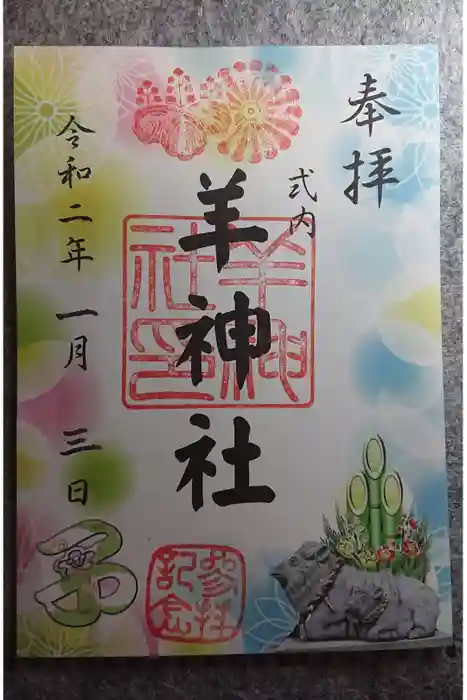 奉拝
式内
羊神社
羊神社印
令和二年一月三日
参拝記念